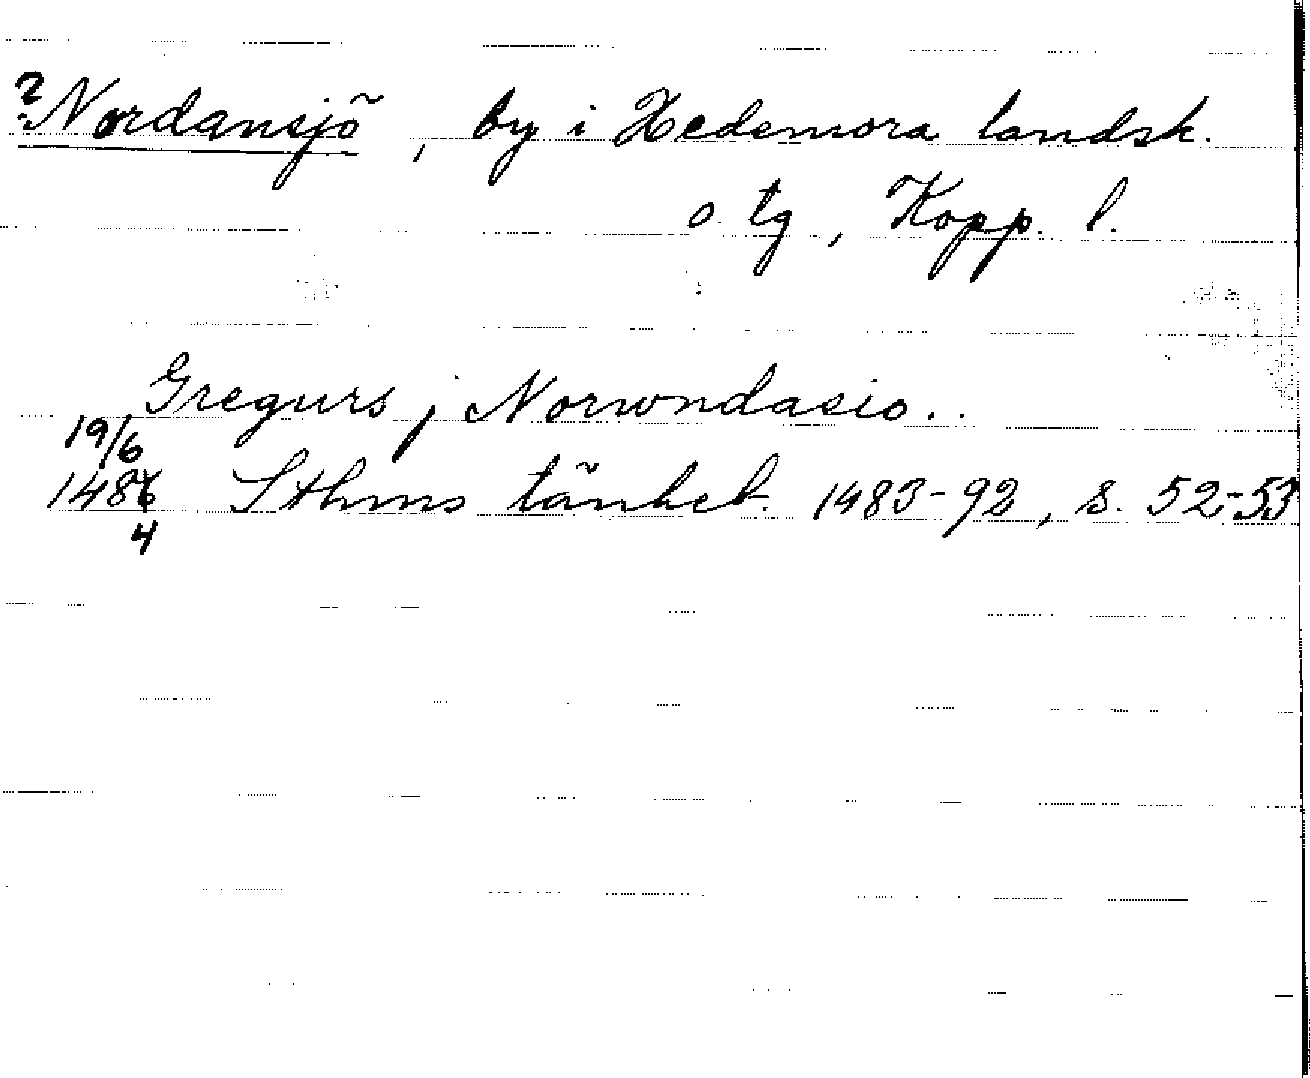 ? Nordansjö, by i Hedemora landsk.
o tg, Kopp. l.
Gregurs j Norwndasio..
19/6
1486 Sthms tänkeb. 1483-92, s. 52-53
4